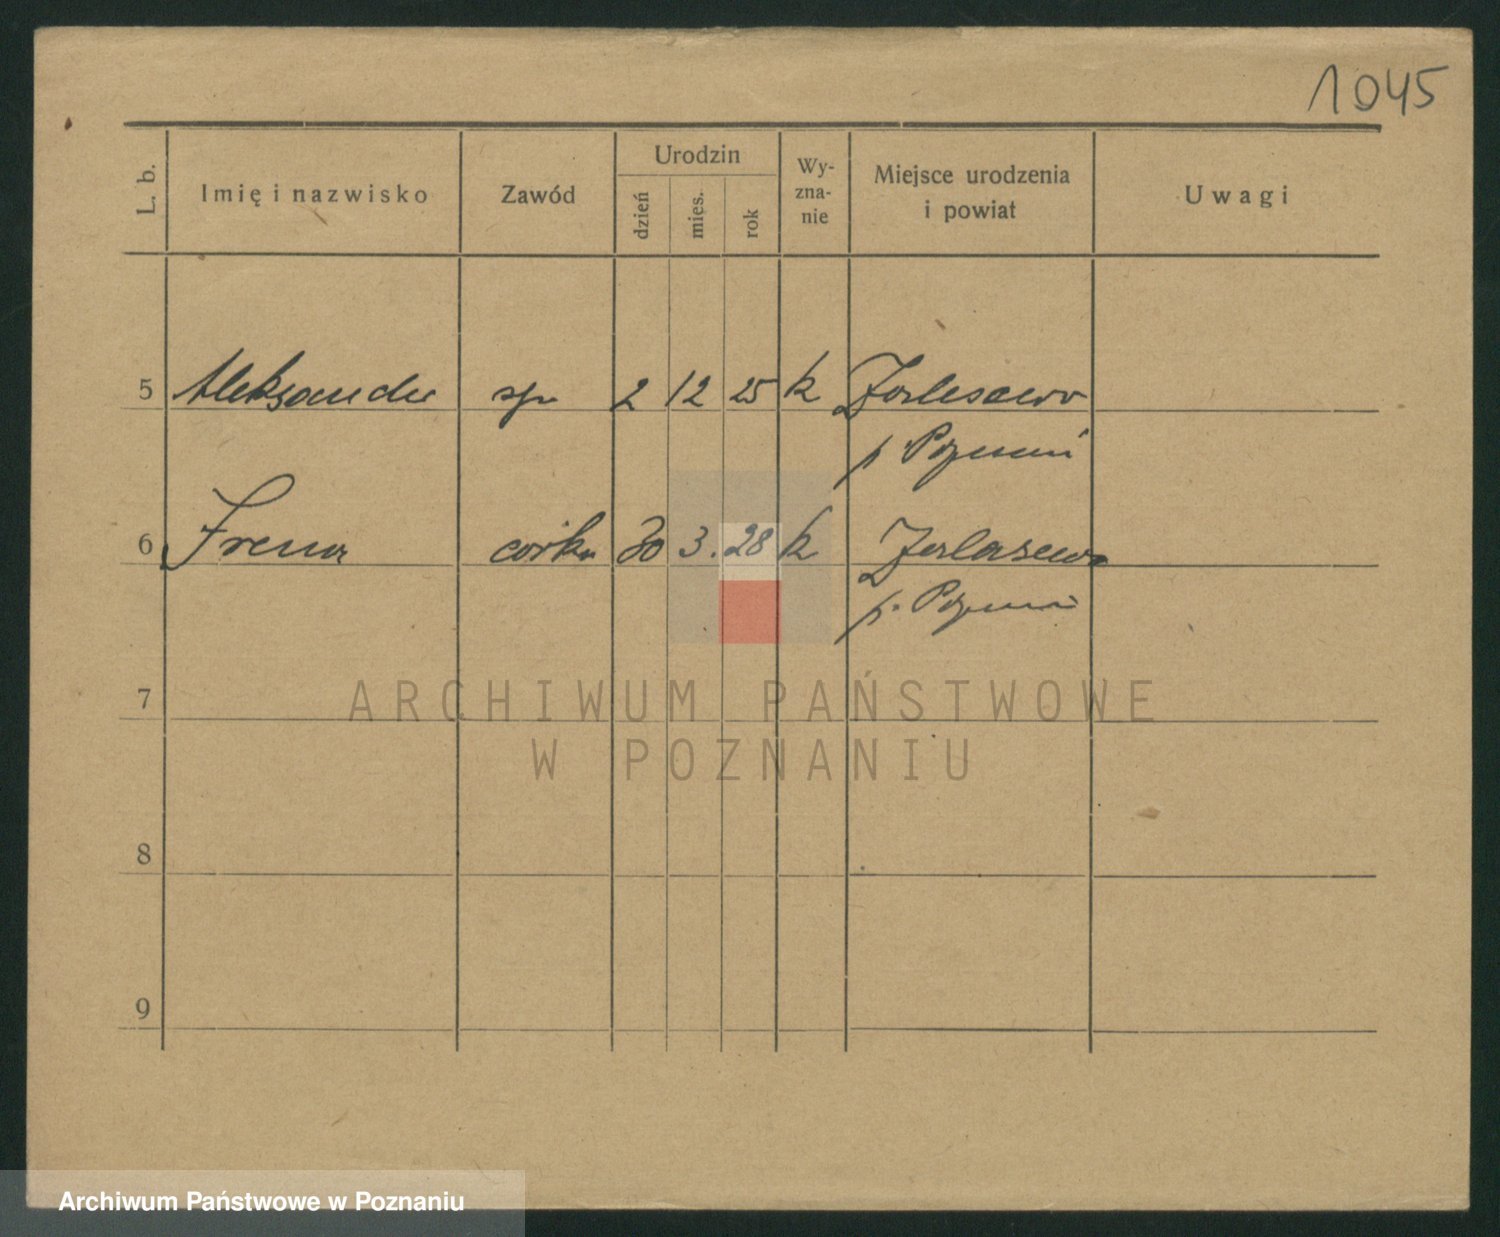 1045
L. b.
Imię i nazwisko
Zawód
Urodzin
dzień
mies.
rok
Wy-
zna-
nie
Miejsce urodzenia
i powiat
Uwagi
5 Aleksander syn 2 12 25 k
p. Poznań
6 Irena córka 30 3. 28 k
p. Poznań
7
ARCHIWUM PAŃSTWOWE
W POZNANIU
8
9
Archiwum Państwowe w Poznaniu